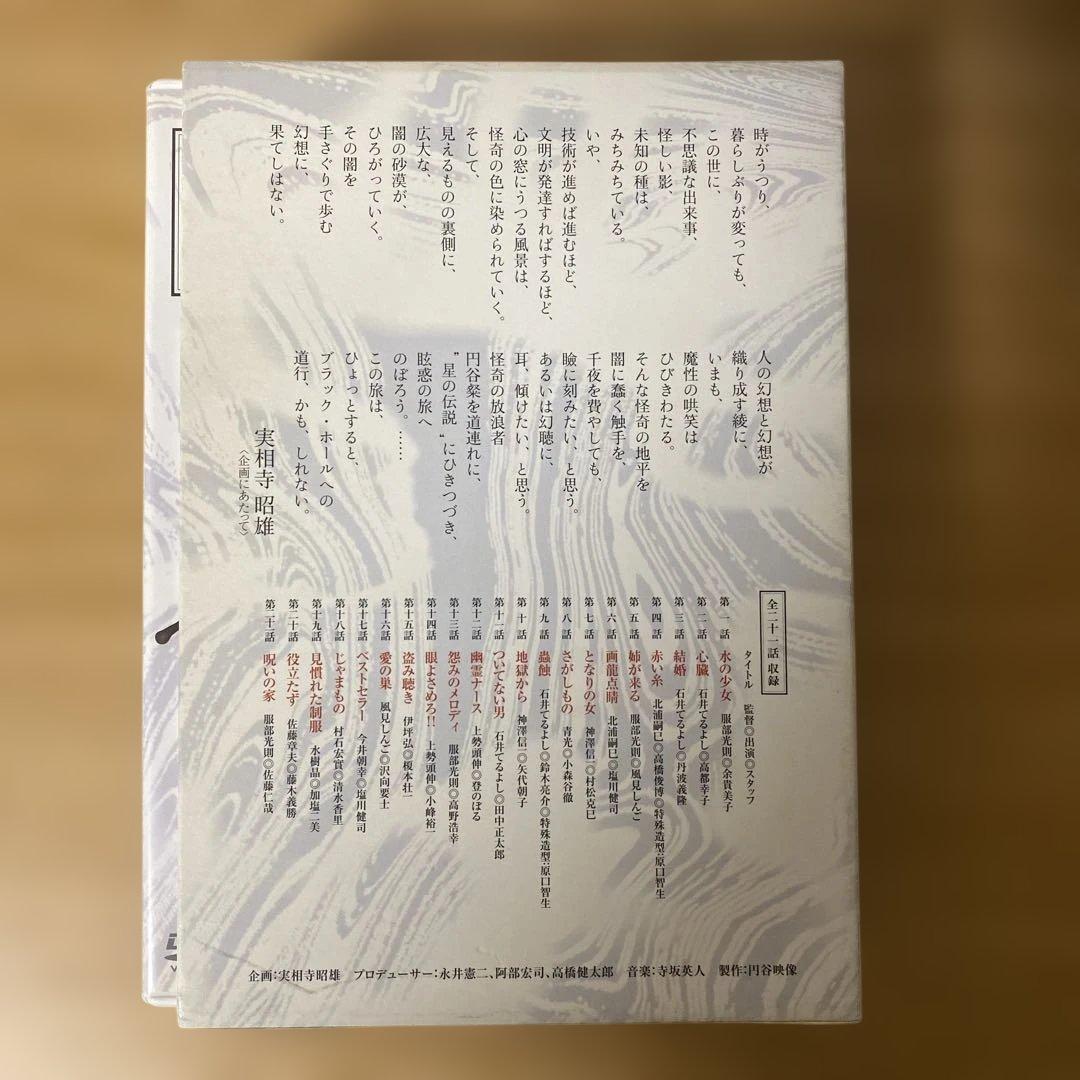 時がうつり、
暮らしぶりが変っても、
この世に、
不思議な出来事、
怪しい影、
未知の種は、
みちみちている。
いや、
技術が進めば進むほど、
文明が発達すればするほど、
心の窓にうつる風景は、
怪奇の色に染められていく。
そして、
見えるものの裏側に、
広大な、
闇の砂漠が、
ひろがっていく。
その闇を
手さぐりで歩む
幻想に、
果てしはない。
人の幻想と幻想が
織り成す綾に、
いまも、
魔性の哄笑は
ひびきわたる。
そんな怪奇の地平を
闇に蠢く触手を、
千夜を費やしても、
瞼に刻みたい、と思う。
あるいは幻聴に、
耳、傾けたい、と思う。
怪奇の放浪者
円谷粲を道連れに、
"星の伝説"にひきつづき、
眩惑の旅へ
のぼろう。……
この旅は、
ひょっとすると、
ブラック・ホールへの
道行、かも、しれない。
実相寺 昭雄
〈企画にあたって〉
全二十一話 収録
タイトル 監督◎出演◎スタッフ
第一話 水の少女 服部光則◎余貴美子
第二話 心臓 石井てるよし◎高都幸子
第三話 結婚 石井てるよし◎丹波義隆
第四話 赤い糸 北浦嗣巳◎高橋俊博◎特殊造型:原口智生
第五話 姉が来る 服部光則◎風見しんご
第六話 画龍点睛 北浦嗣巳◎塩川健司
第七話 となりの女 神澤信一◎村松克巳
第八話 さがしもの 青光◎小森谷徹
第九話 蟲蝕 石井てるよし◎鈴木亮介◎特殊造型:原口智生
第十話 地獄から 神澤信一◎矢代朝子
第十一話 ついてない男 石井てるよし◎田中正太郎
第十二話 幽霊ナース 上勢頭伸◎登のぼる
第十三話 怨みのメロディ 服部光則◎高野浩幸
第十四話 眼よさめろ!! 上勢頭伸◎小峰裕一
第十五話 盗み聴き 伊坪弘◎榎本壮一
第十六話 愛の巣 風見しんご◎沢向要士
第十七話 ベストセラー 今井朝幸◎塩川健司
第十八話 じゃまもの 村石宏實◎清水香里
第十九話 見慣れた制服 水樹晶◎加塩二美
第二十話 役立たず 佐藤章夫◎藤木義勝
第二十一話 呪いの家 服部光則◎佐藤仁哉
企画:実相寺昭雄 プロデューサー:永井憲二、阿部宏司、高橋健太郎 音楽:寺坂英人 製作:円谷映像